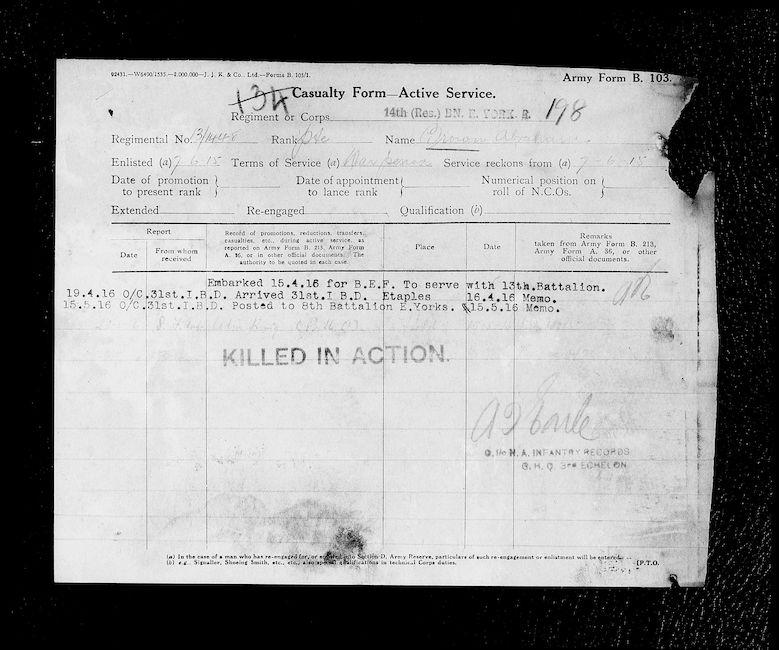 92431.—W6490/1535.—2,000,000—J. J. K. & Co., Ltd.—Forms B. 103/1.
Army Form B. 103.
134
Casualty Form—Active Service.
Regiment or Corps 14th (Res.) BN. E. YORK. R. 198
Regimental No. Rank Pte Name Brown Abraham
Enlisted (a) 7.6.15 Terms of Service (a) Service reckons from (a) 7.6.15
Date of promotion to present rank
Date of appointment to lance rank
Numerical position on roll of N.C.Os.
Extended Re-engaged Qualification (b)
Report
Date
From whom received
Record of promotions, reductions, transfers, casualties, etc., during active service, as reported on Army Form B. 213, Army Form A. 36, or in other official documents. The authority to be quoted in each case.
Place
Date
Remarks
taken from Army Form B. 213, Army Form A. 36, or other official documents.
Embarked 15.4.16 for B.E.F. To serve with 13th.Battalion.
19.4.16 O/C.31st.I.B.D. Arrived 31st.I B.D. Etaples 16.4.16 Memo.
15.5.16 O/C.31st.I.B.D. Posted to 8th Battalion E.Yorks. 15.5.16 Memo.
KILLED IN ACTION.
INFANTRY RECORDS
G. H. Q. 3rd ECHELON
(a) In the case of a man who has re-engaged for, or enlisted into Section D, Army Reserve, particulars of such re-engagement or enlistment will be entered.
(b) e.g., Signaller, Shoeing Smith, etc., etc., also special qualifications in technical Corps duties.
[P.T.O.